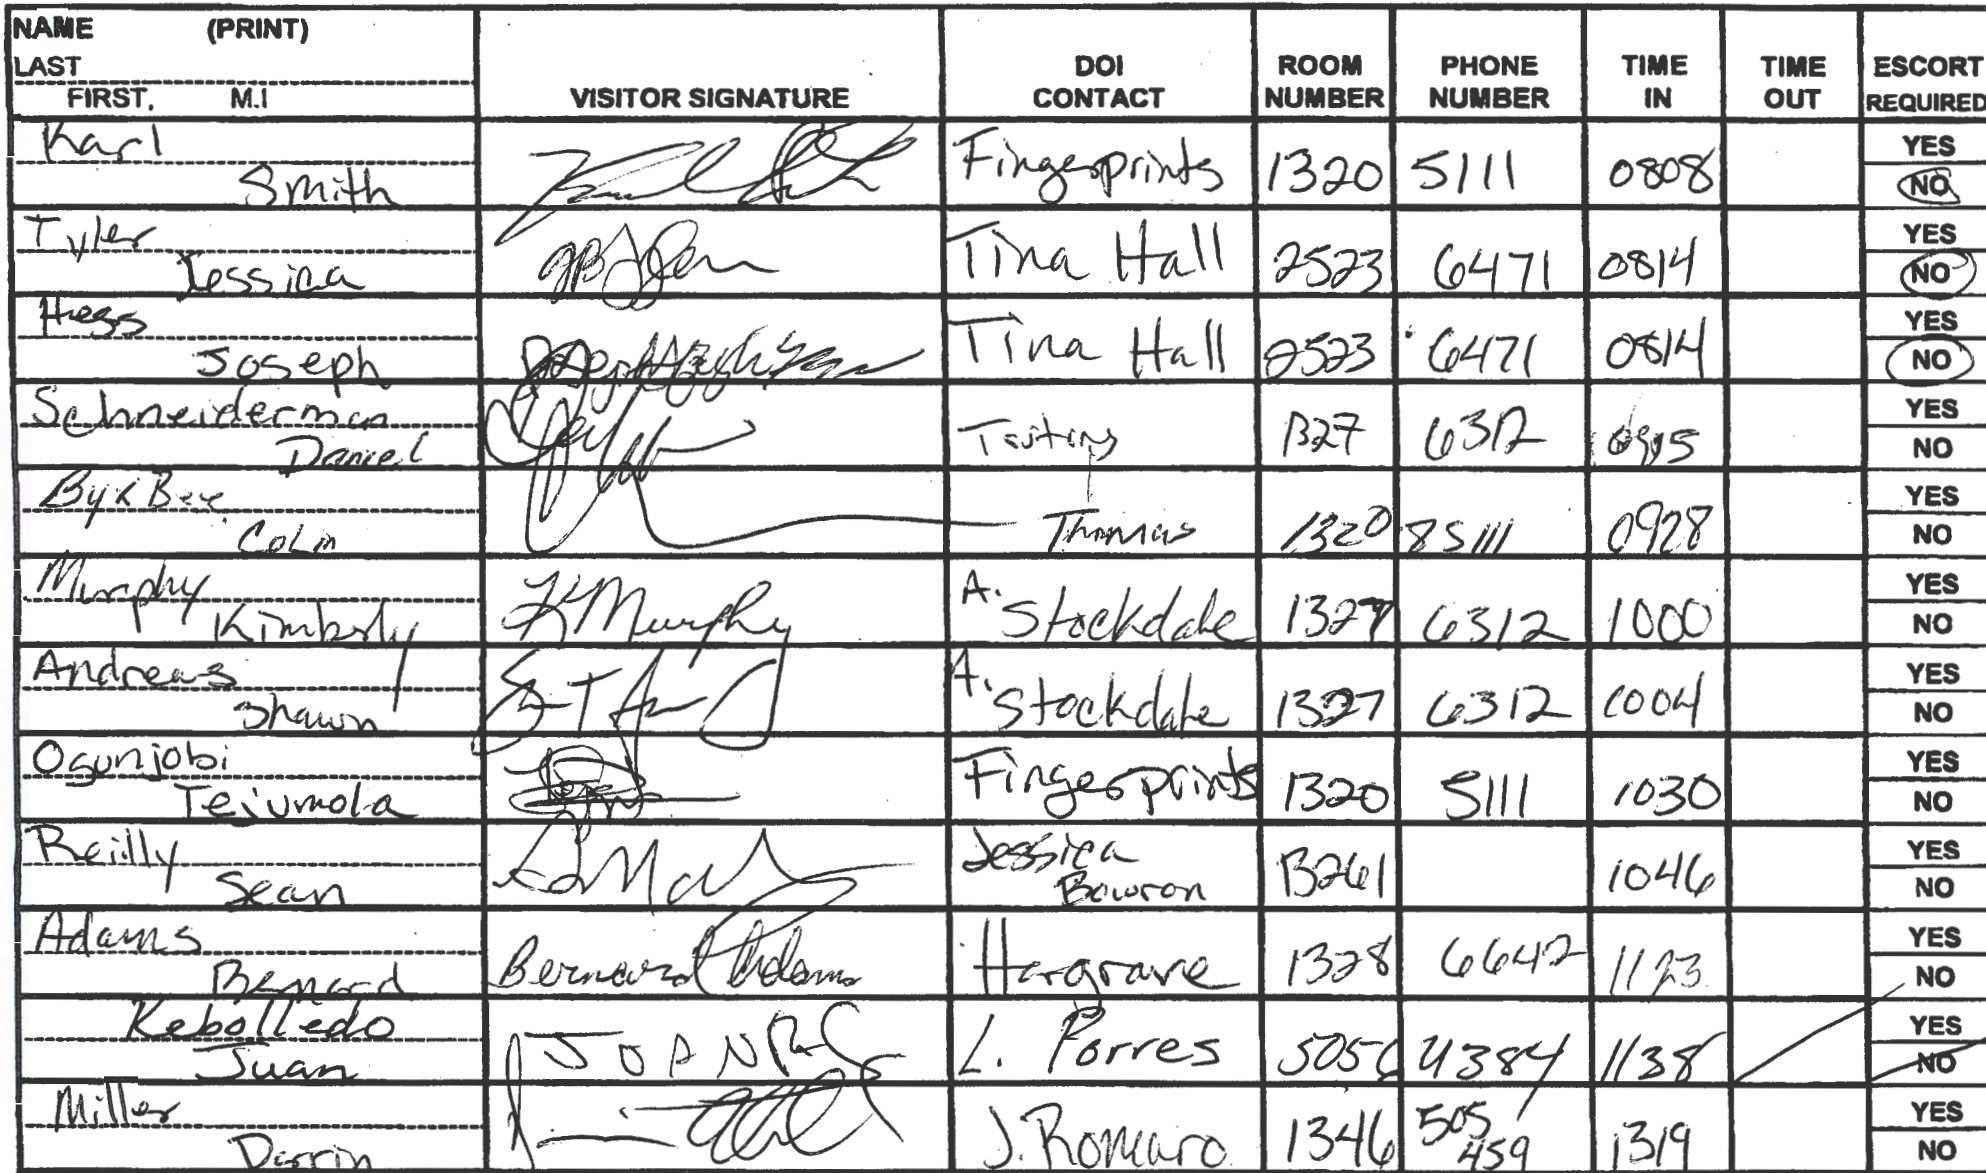 NAME (PRINT)
LAST
FIRST, M.I
VISITOR SIGNATURE
DOI CONTACT
ROOM NUMBER
PHONE NUMBER
TIME IN
TIME OUT
ESCORT REQUIRED
Karl
Smith
Fingerprints 1320 5111 0808
YES
NO
Tyler
Jessica
Tina Hall 2523 6471 0814
YES
NO
Hess
Joseph
Tina Hall 2523 6471 0814
YES
NO
Schneiderman
Daniel
1327 6312
YES
NO
Colin
Thomas 1320 85111 0928
YES
NO
Murphy
Kimberly
K Murphy
A. Stockdale 1327 6312 1000
YES
NO
Andrews
Shawn
A. Stockdale 1327 6312 1004
YES
NO
Ogunjobi
Tejumola
Fingerprints 1320 5111 1030
YES
NO
Reilly
Sean
Jessica
Bowron
1046
YES
NO
Adams
Bernard
Bernard Adams
Hargrave 1328 6642 1123
YES
NO
Rebolledo
Juan
L. Porres 5056 4384 1138
YES
NO
Miller
Darrin
J. Romero 1346 505 459 1319
YES
NO